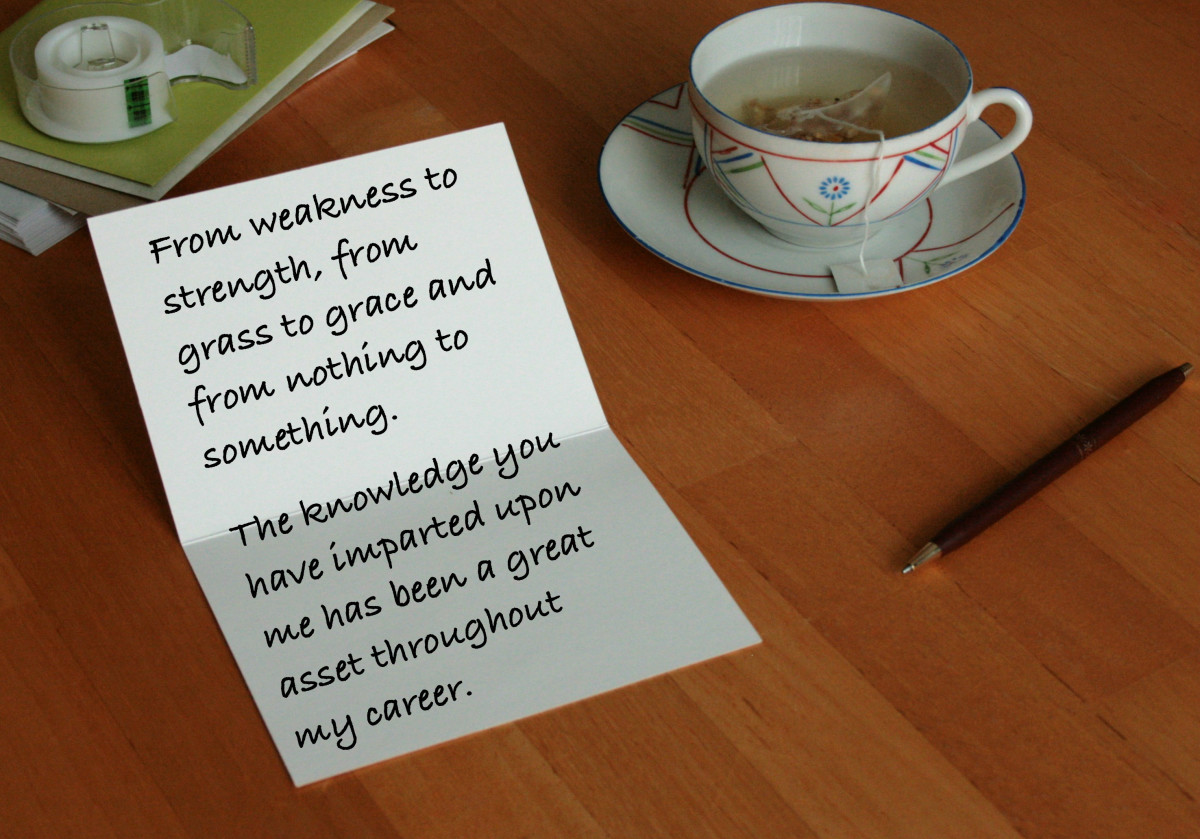 From weakness to
strength, from
grass to grace and
from nothing to
something.
The knowledge you
have imparted upon
me has been a great
asset throughout
my career.